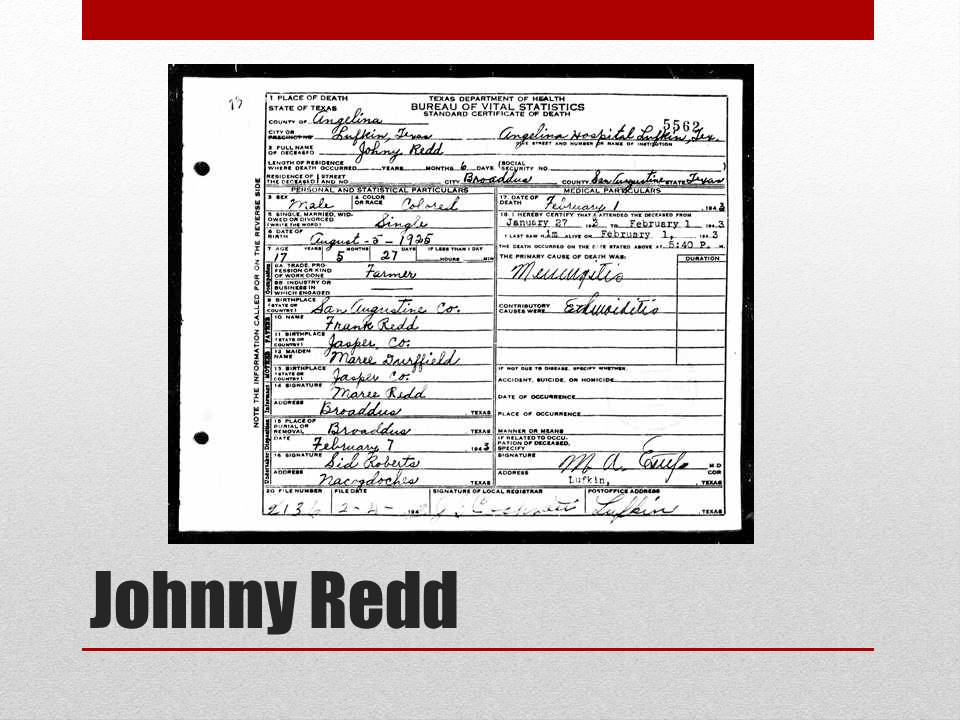 73
1 PLACE OF DEATH
STATE OF TEXAS
COUNTY OF Angelina
TEXAS DEPARTMENT OF HEALTH
BUREAU OF VITAL STATISTICS
STANDARD CERTIFICATE OF DEATH
5562
CITY OR PRECINCT NO. Lufkin, Texas Angelina Hospital Lufkin, Tex.
GIVE STREET AND NUMBER OR NAME OF INSTITUTION
2 FULL NAME OF DECEASED Johny Redd
LENGTH OF RESIDENCE WHERE DEATH OCCURRED YEARS MONTHS 6 DAYS (SOCIAL SECURITY NO. )
RESIDENCE OF THE DECEASED STREET AND NO. CITY Broaddus COUNTY San Augustine STATE Texas
NOTE THE INFORMATION CALLED FOR ON THE REVERSE SIDE
PERSONAL AND STATISTICAL PARTICULARS
3 SEX Male 4 COLOR OR RACE Colored
5 SINGLE, MARRIED, WIDOWED OR DIVORCED (WRITE THE WORD) Single
6 DATE OF BIRTH August-5-1925
7 AGE YEARS MONTHS DAYS IF LESS THAN 1 DAY
17 5 27 HOURS MIN
Occupation
8A TRADE, PROFESSION OR KIND OF WORK DONE Farmer
8B INDUSTRY OR BUSINESS IN WHICH ENGAGED
9 BIRTHPLACE (STATE OR COUNTRY) San Augustine Co.
FATHER
10 NAME Frank Redd
11 BIRTHPLACE (STATE OR COUNTRY) Jasper, Co.
MOTHER
12 MAIDEN NAME Maree
13 BIRTHPLACE (STATE OR COUNTRY) Jasper Co.
Informant
14 SIGNATURE Maree Redd
ADDRESS Broaddus TEXAS
Disposition
15 PLACE OF BURIAL OR REMOVAL Broaddus TEXAS
DATE February 7 1943
Undertaker
16 SIGNATURE Sid Roberts
ADDRESS Nacogdoches TEXAS
MEDICAL PARTICULARS
17 DATE OF DEATH February 1, 1943
18 I HEREBY CERTIFY THAT I ATTENDED THE DECEASED FROM
January 27 TO February 1 1943
I LAST SAW him ALIVE ON February 1, 1943
THE DEATH OCCURRED ON THE DATE STATED ABOVE AT 5:40 P. M.
THE PRIMARY CAUSE OF DEATH WAS: DURATION
Meningitis
CONTRIBUTORY CAUSES WERE
IF NOT DUE TO DISEASE, SPECIFY WHETHER:
ACCIDENT, SUICIDE, OR HOMICIDE
DATE OF OCCURRENCE
PLACE OF OCCURRENCE
MANNER OR MEANS
IF RELATED TO OCCUPATION OF DECEASED, SPECIFY
SIGNATURE M A M.D COR
ADDRESS Lufkin, TEXAS
20 FILE NUMBER FILE DATE SIGNATURE OF LOCAL REGISTRAR POSTOFFICE ADDRESS
2136 2-4- 194 Lufkin TEXAS
Johnny Redd